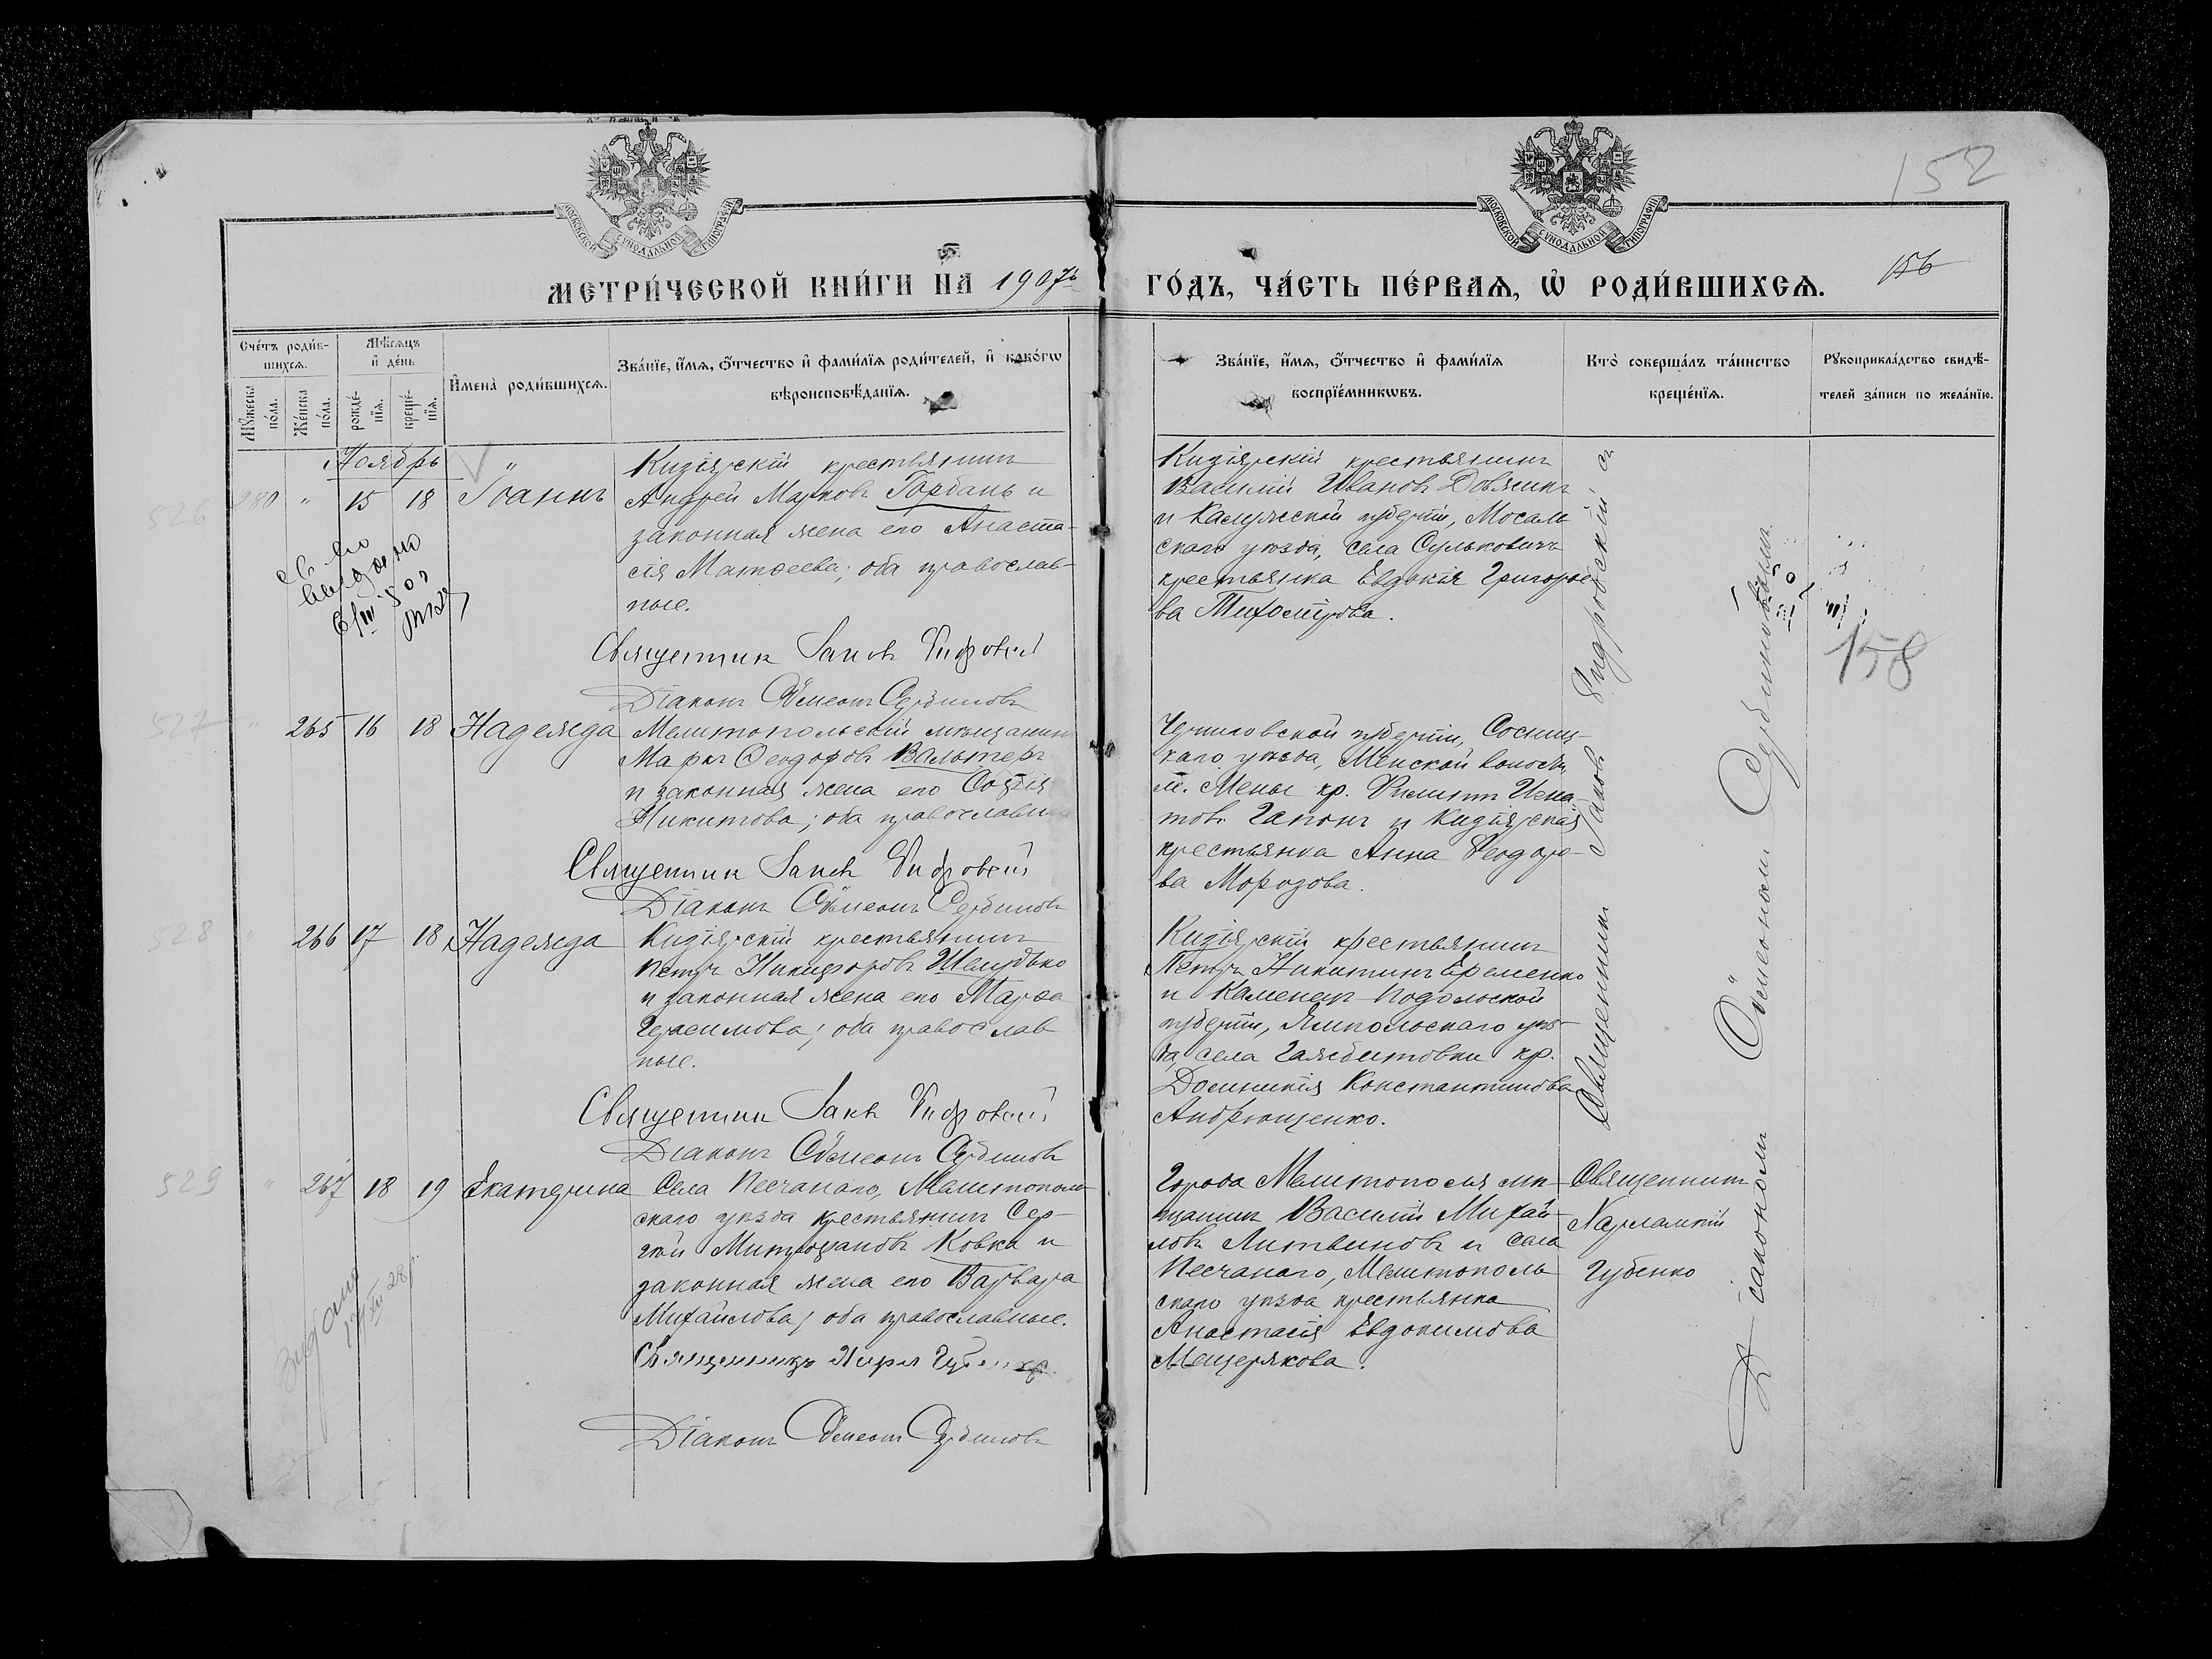 152
МОСКОВСКОЙ СѴНОДАЛЬНОЙ ТИПОГРАФІИ
МОСКОВСКОЙ СѴНОДАЛЬНОЙ ТИПОГРАФІИ
МЕТРИ́ЧЕСКОЙ КНИ́ГИ НА 1907й
ГО́ДЪ, ЧА́СТЬ ПЕ́РВАѦ, Ѡ҆ РОДИ́ВШИХСѦ.
156
Сче́тъ роди́в-
шихсѧ.
Мꙋ́жеска по́ла.
Же́нска по́ла.
Мѣ́сѧцъ
и҆ де́нь
рожде́-
нїѧ.
креще́-
нїѧ.
И҆мена̀ роди́вшихсѧ.
Зва́нїе, и҆́мѧ, ѻ҆́тчество и҆ фами́лїѧ роди́телей, и҆ како́гѡ
вѣроисповѣ́данїѧ.
Зва́нїе, и҆́мѧ, ѻ҆́тчество и҆ фами́лїѧ
воспрїе́мникѡвъ.
Кто̀ соверша́лъ та́инство
креще́нїѧ.
Рꙋкоприкла́дство свидѣ́-
телей за́писи по жела́нїю.
Ноябрь
526 280 " 15 18 Іоаннъ
Кизіярскій крестьянинъ
Андрей Марковъ Горбань и
законная жена его Анаста-
сія Матѳеева; оба православ
ные.
Священник Іаков
Діаконъ Сѵмеонъ Сербиновъ
Кизіярскій крестьянинъ
Василій Ивановъ Довженк
и Калужской губерніи, Мосаль
скаго уѣзда, села Сульковичъ
крестьянка Евдокія Григорье
ва Тихомірова.
выдано
158
527 " 265 16 18 Надежда
Мелитопольскій мѣщанинъ
Маркъ Ѳеодоровъ Вальтеръ
и законная жена его Софія
Никитова; оба православн
Священник Іаков
Діаконъ Сѵмеонъ Сербиновъ
Черниговской губерніи, Сосниц-
каго уѣзда, Менской волости,
м. Мены кр. Филиппъ Игна-
товъ Гапонъ и Кизіярская
крестьянка Анна Ѳеодоро-
ва Морозова.
528 " 266 17 18 Надежда
Кизіярскій крестьянинъ
Петръ Никифоровъ Шелудько
и законная жена его Марѳа
Герасимова; оба православ
ные.
Священник Іаков
Діаконъ Сѵмеонъ Сербиновъ
Кизіярскій крестьянинъ
Петръ Никитинъ Еременко
и Каменецъ-Подольской
губерніи, Ямпольскаго уѣз-
да, села Гажбитовки кр.
Домникія Константинова
Андрющенко.
Священник Іаков
Діакономъ Сѵмеономъ Сербиновымъ
529 " 267 18 19 Екатерина
Села Песчанаго, Мелитополь
скаго уѣзда крестьянинъ Сер-
гѣй Митрофановъ Ковка и
законная жена его Варвара
Михайлова; оба православные.
Священникъ
Діаконъ Сѵмеонъ Сербиновъ
Города Мелитополя мѣ-
щанинъ Василій Михай-
ловъ Литвиновъ и села
Песчанаго, Мелитополь
скаго уѣзда крестьянка
Анастасія Евдокимова
Мещерякова.
Священникъ
Харлампій
Губенко